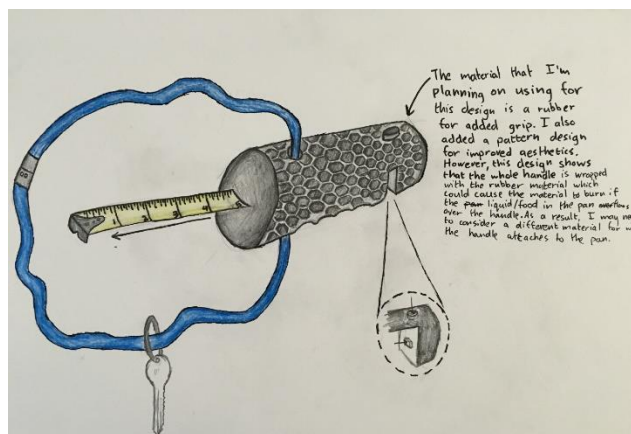 The material that I'm
planning on using for
this design is a rubber
for added grip. I also
added a pattern design
for improved aesthetics.
However, this design shows
that the whole handle is wrapped
with the rubber material which
could cause the material to burn if
the liquid/food in the pan overflows
over the handle. As a result, I may
to consider a different material for
the handle attaches to the pan.
1 2 3 4